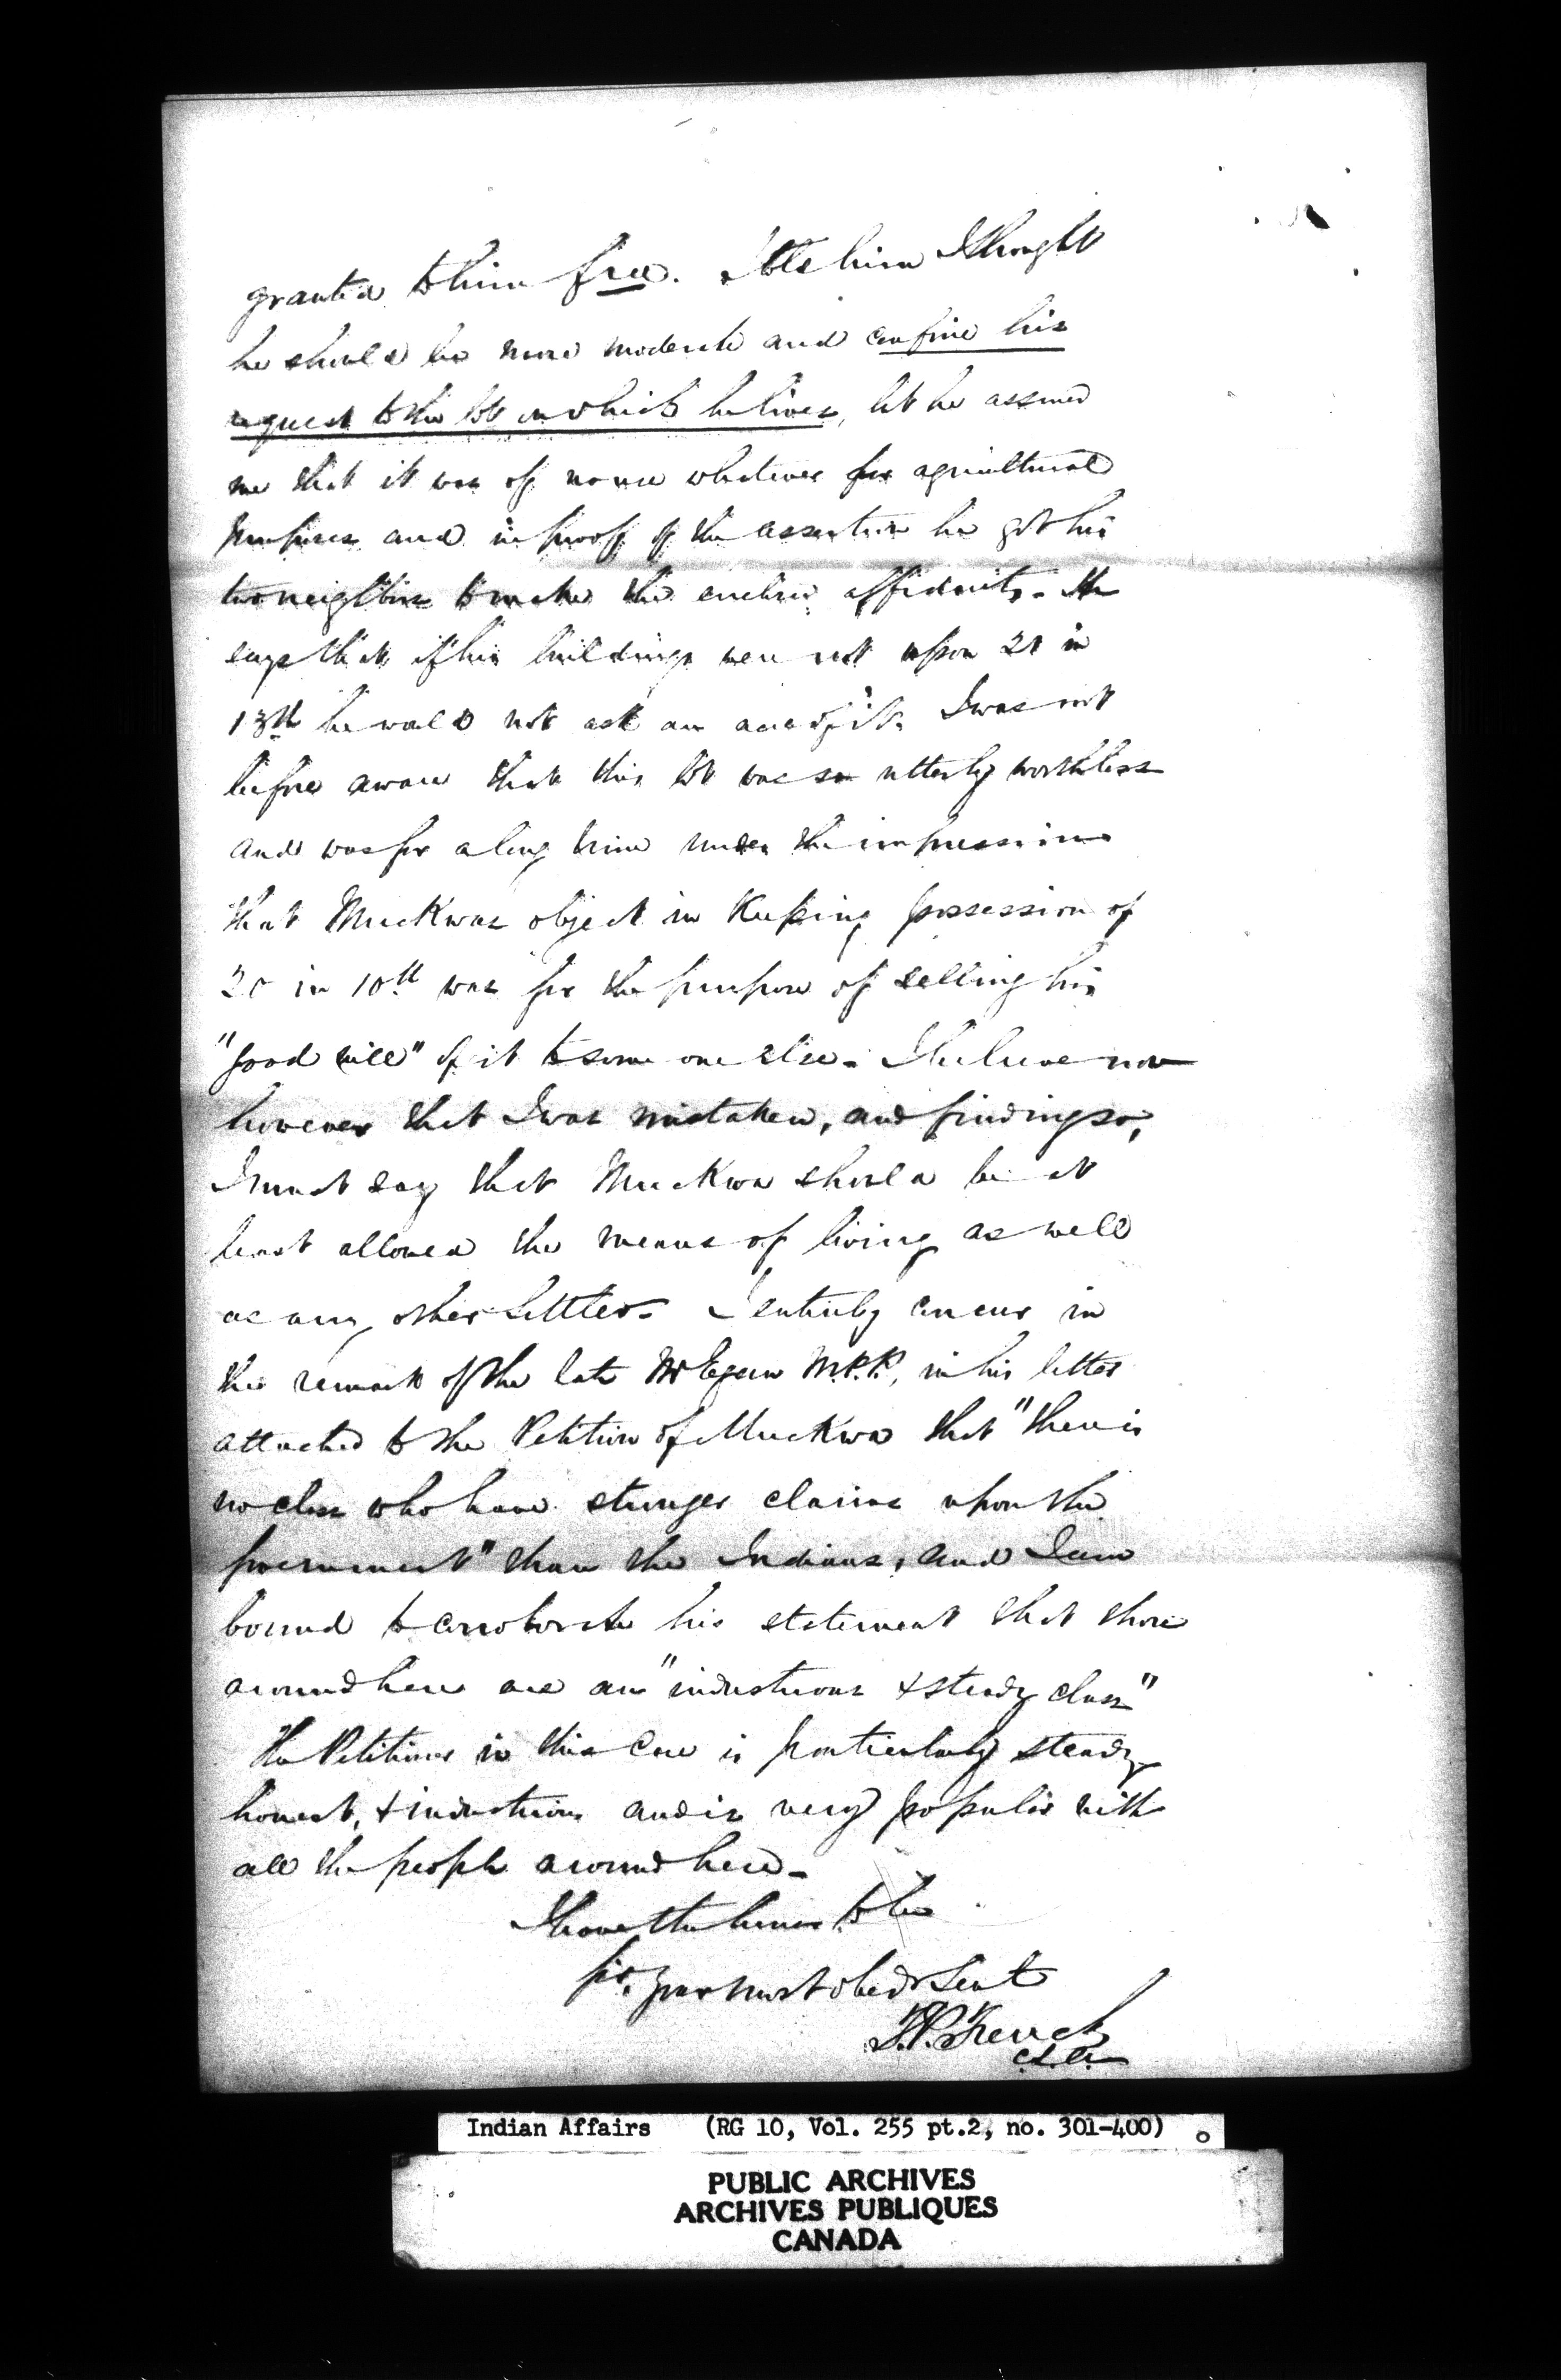 granted to him free. I told him I thought
he should be more moderate and confine his
request to the lot on which he lives, but he assured
me that it was of no use whatever for agricultural
purposes and in proof of the assertion he got his
two neighbors to make the enclosed affidavits. He
says that if his buildings were not upon 21 in
13th he would not ask an acre of it. I was not
before aware that this lot was so utterly worthless
and was for a long time under the impression
that Muckwas object in Keeping possession of
20 in 10th was for the purpose of selling his
"good will" of it to some one else. I believe now
however that I was mistaken, and finding so,
I must say that Muckwa should be at
least allowed the means of living as well
as any other Settler. I entirely concur in
the remark of the late Mr Egan M.P.P. in his letter
attached to the Petition of Muckwa that "there is
no class who have stronger claims upon the
government" than the Indians, and I am
bound to corroborate his statement that those
around here are an "industrious & steady class"
The Petitioner in this case is particularly steady
honest, & industrious and is very popular with
all the people around here.
I have the honor to be
Sir, your most obedt Servt
T.P. French
C.L.A.
Indian Affairs (RG 10, Vol. 255 pt.2, no. 301-400)
PUBLIC ARCHIVES
ARCHIVES PUBLIQUES
CANADA